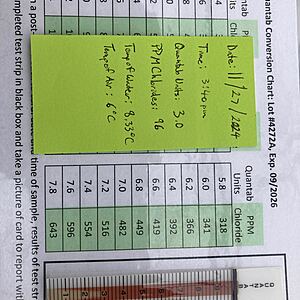 uantab Conversion Chart: Lot #4272A, Exp. 09/2026
Date: 11/27/2024
Time: 3:40 pm
Quantab Units: 3.0
PPM Chlorides: 96
Temp of Water: 8.33°C
Temp of Air: 6°C
Quantab Units PPM Chloride
5.8 318
6.0 341
6.2 366
6.4 392
6.6 419
6.8 449
7.0 482
7.2 516
7.4 554
7.6 596
7.8 643
n a post- and time of sample, results of test str
mpleted test strip in black box and take a picture of card to report with
QUANTAB